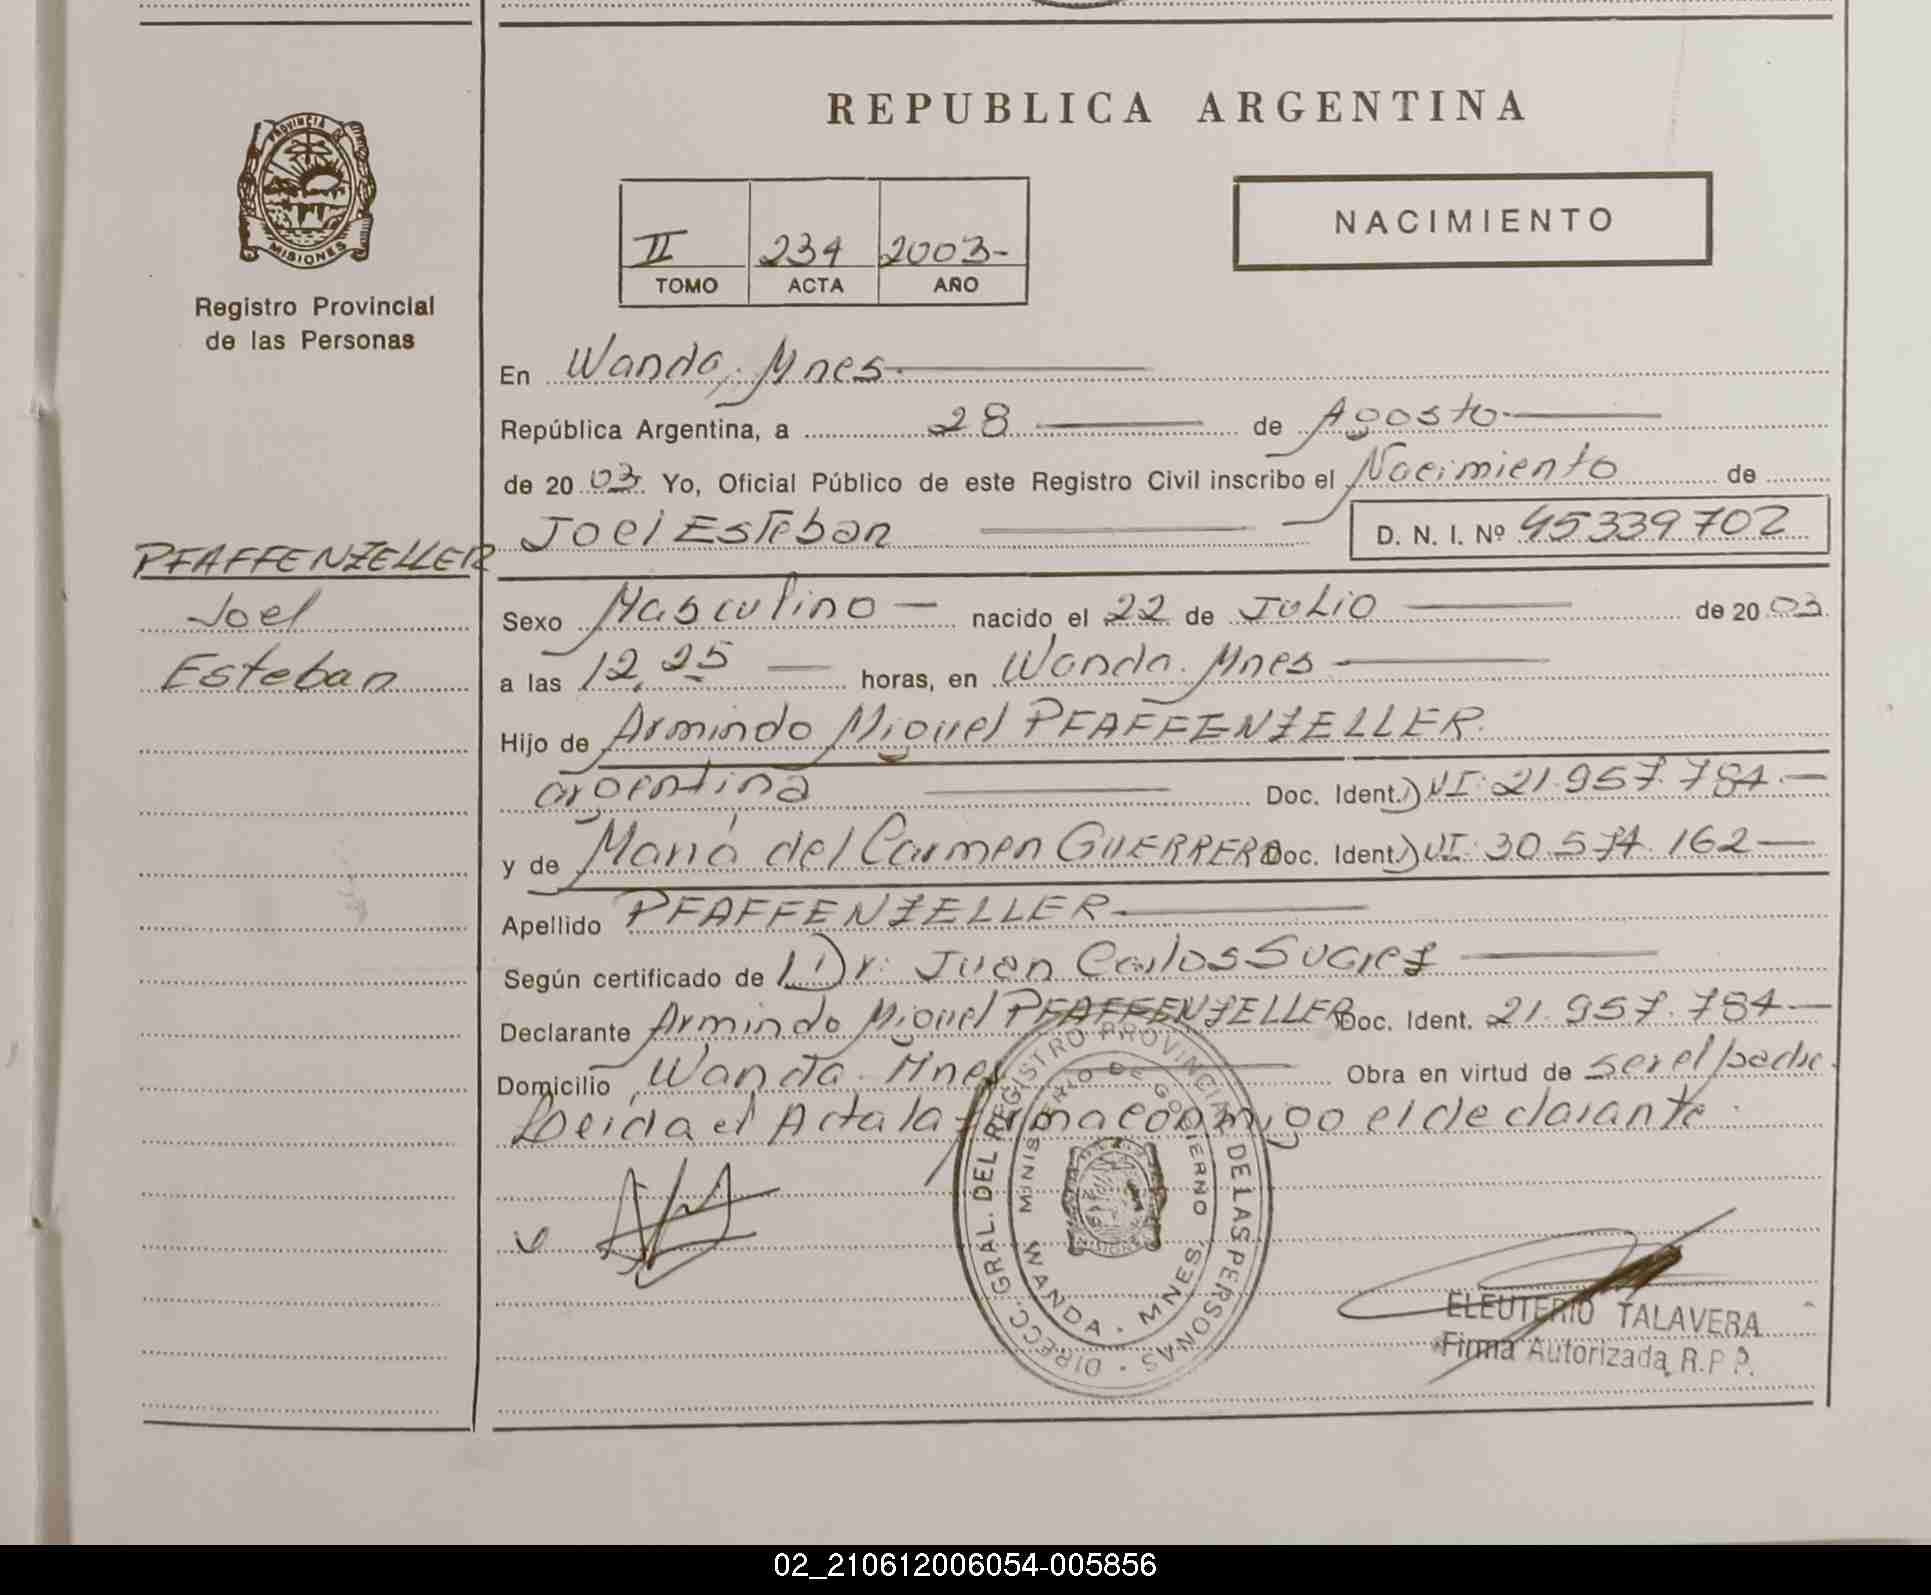 REPUBLICA ARGENTINA
PROVINCIA DE
MISIONES
Registro Provincial
de las Personas
II 234 2003-
TOMO ACTA AÑO
NACIMIENTO
En Wanda, Mnes.
República Argentina, a 28 de Agosto
de 2003. Yo, Oficial Público de este Registro Civil inscribo el Nacimiento de
Joel Esteban D. N. I. Nº 45339702
PFAFFENZELLER
Joel
Esteban
Sexo Masculino — nacido el 22 de JULIO de 2003.
a las 12,25 — horas, en Wanda. Mnes
Hijo de Armindo Miguel PFAFFENZELLER.
argentina Doc. Ident. DNI. 21.957.784.—
y de María del Carmen GUERRERO Doc. Ident. DNI. 30.574.162—
Apellido PFAFFENZELLER.
Según certificado de Dr. Juan Carlos
Declarante Armindo Miguel PFAFFENZELLER Doc. Ident. 21.957.784—
Domicilio Wanda. Mnes Obra en virtud de ser el padre.
Leida el Acta la firma conmigo el declarante.
DIRECC. GRAL. DEL REGISTRO PROVINCIAL DE LAS PERSONAS
MINISTERIO DE GOBIERNO
WANDA - MNES.
MISIONES
ELEUTERIO TALAVERA
Firma Autorizada R.P.P.
02_210612006054-005856